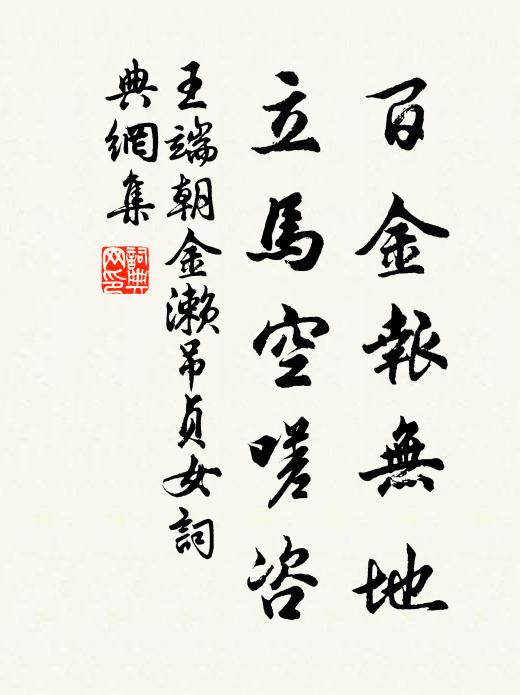 百金報無地
立馬空嗟咨
王端朝金濑吊貞女詞
典網集
詞典網印